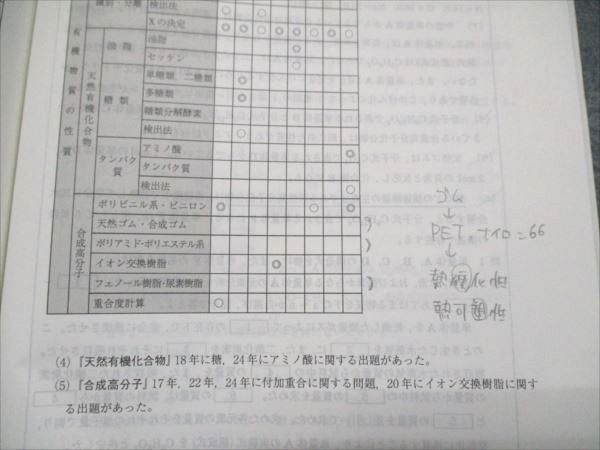 識別・分離
検出法
Xの決定
有機物質の性質
天然有機化合物
油脂
油脂
セッケン
糖類
単糖類 二糖類
多糖類
糖類分解酵素
検出法
タンパク質
アミノ酸
タンパク質
検出法
合成高分子
ポリビニル系・ビニロン
天然ゴム・合成ゴム
ポリアミド・ポリエステル系
イオン交換樹脂
フェノール樹脂・尿素樹脂
重合度計算
ゴム
↓
PET ナイロン66
↓
熱硬化性
熱可塑性
(4) 『天然有機化合物』18年に糖，24年にアミノ酸に関する出題があった。
(5) 『合成高分子』17年，22年，24年に付加重合に関する問題，20年にイオン交換樹脂に関す
る出題があった。